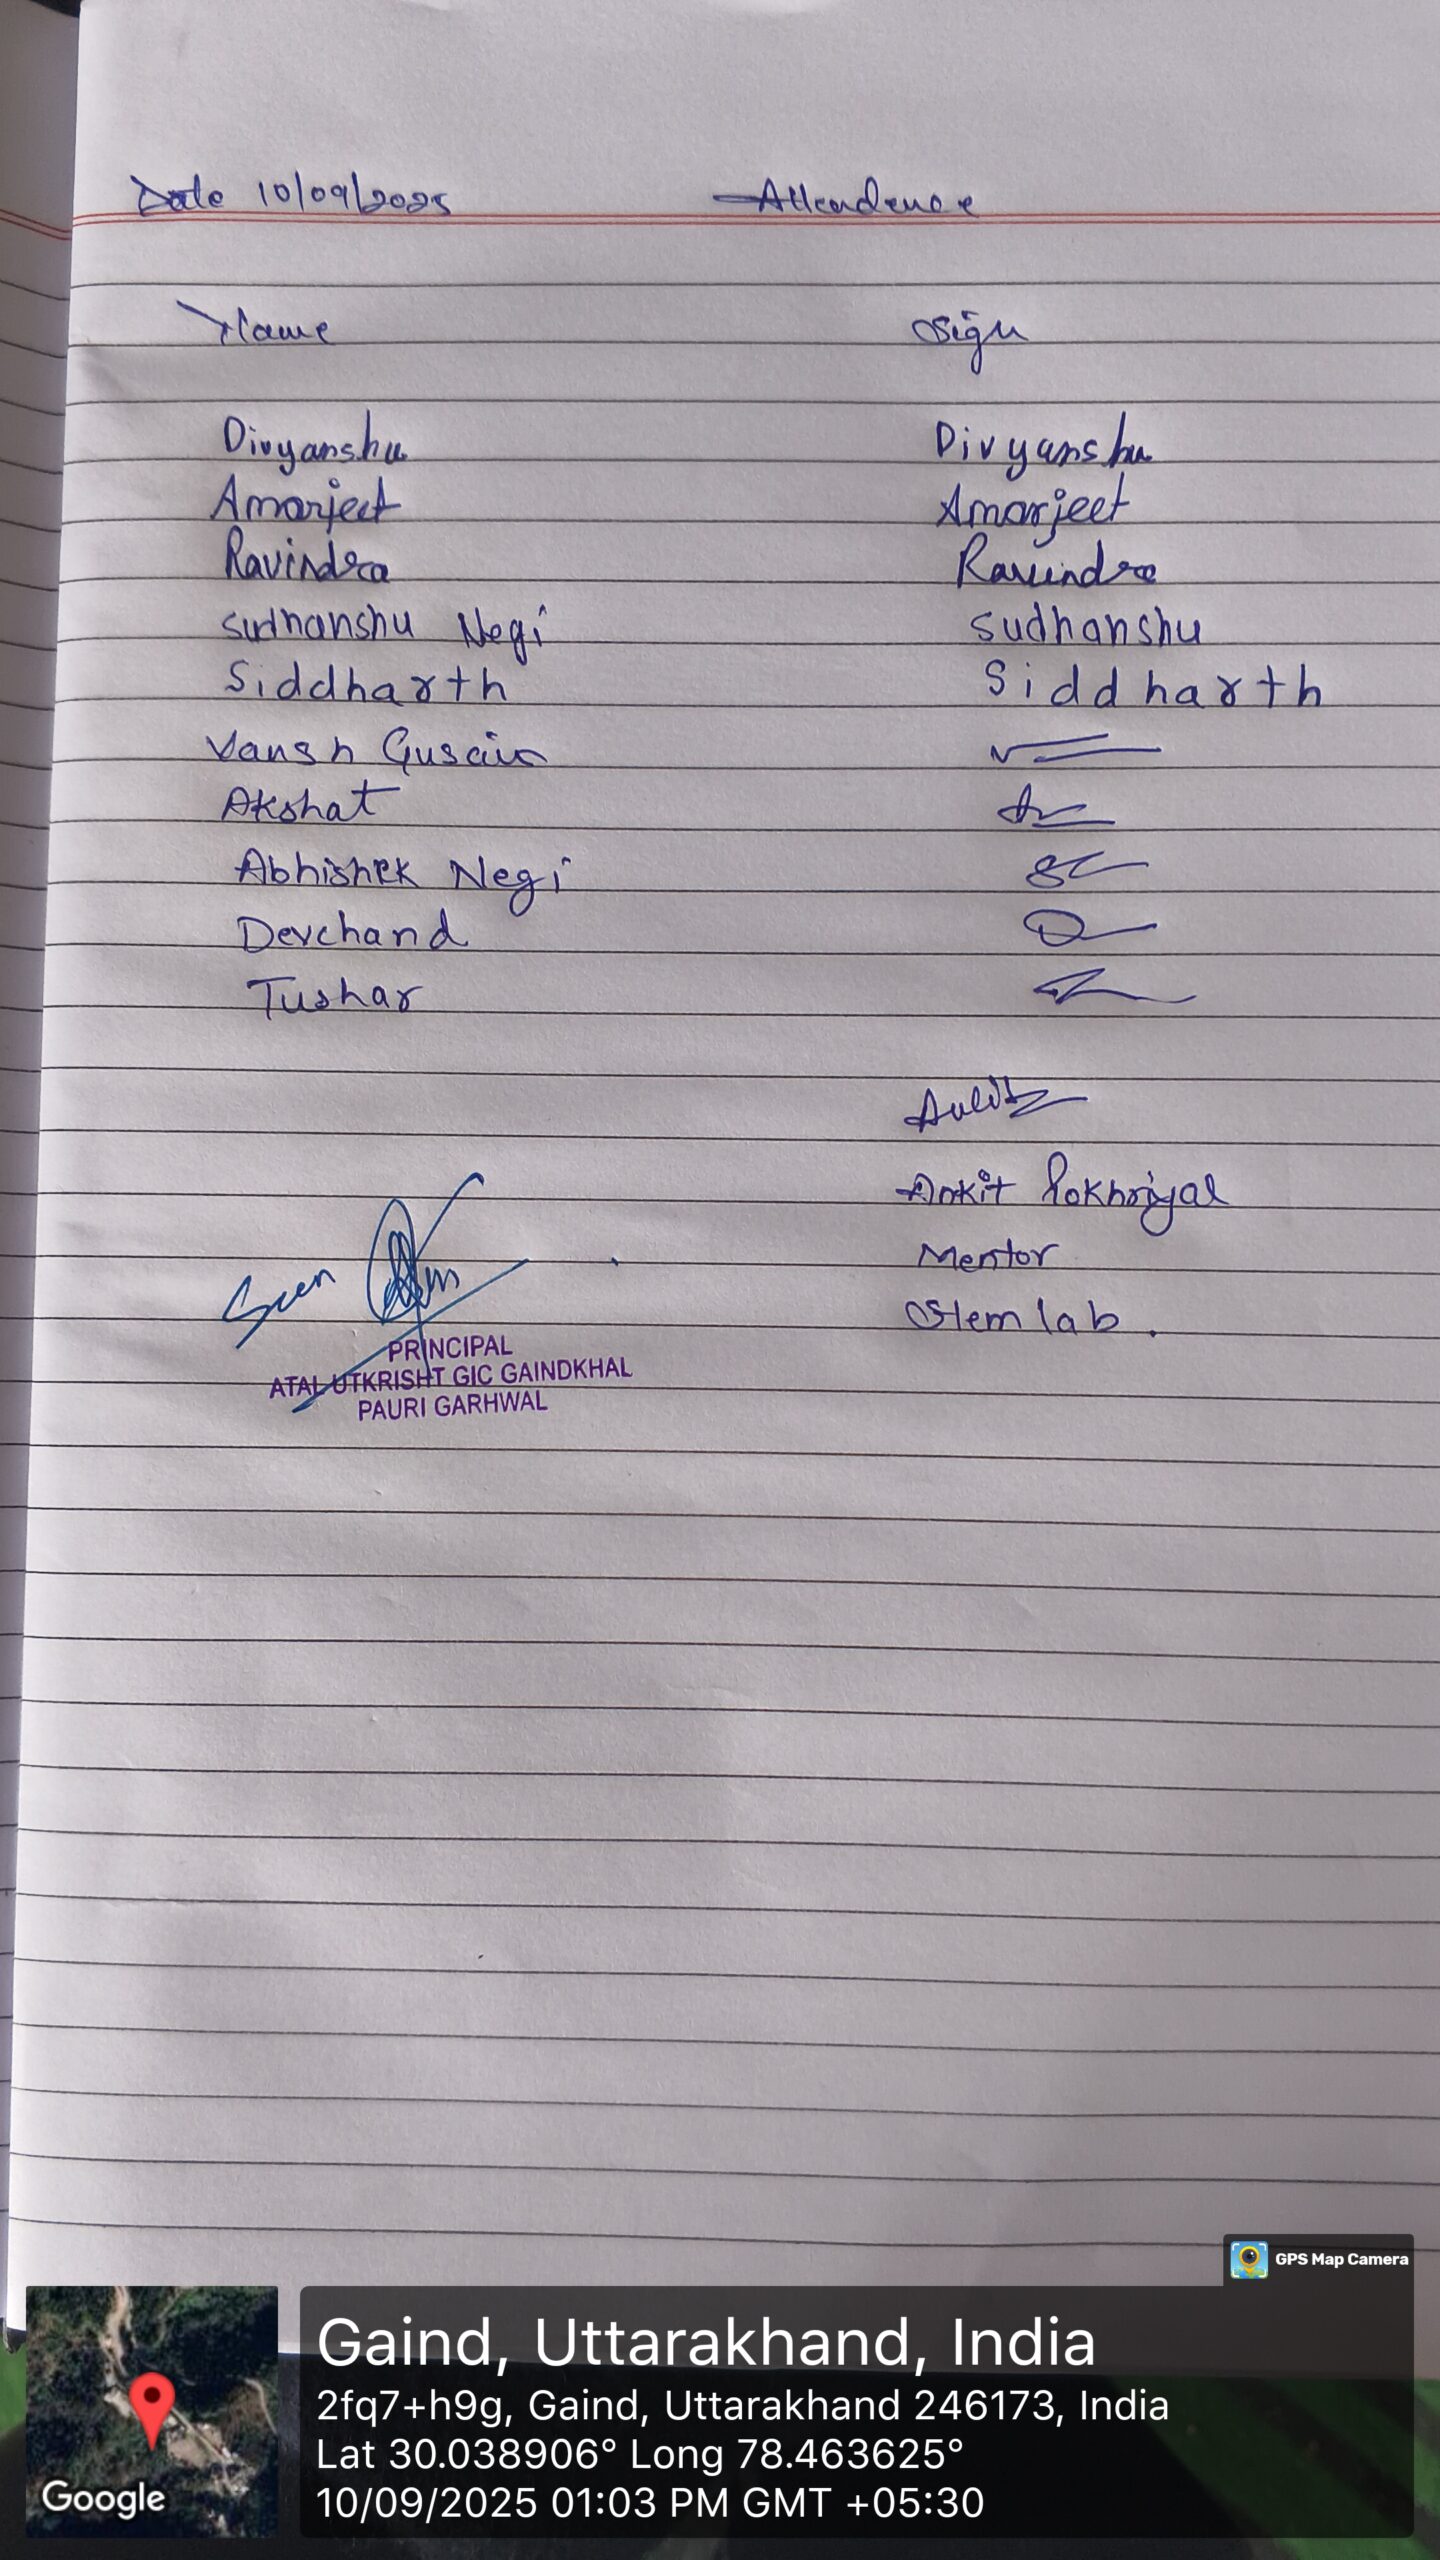 Date 10/09/2025 Attendence
Name Sign
Divyanshu Divyanshu
Amarjeet Amarjeet
Ravindra Ravindra
Sudhanshu Negi Sudhanshu
Siddharth Siddharth
Vansh Gusain
Akshat
Abhishek Negi
Devchand
Tushar
Ankit
Ankit Pokhriyal
Mentor
Stem lab.
Seen
PRINCIPAL
ATAL UTKRISHT GIC GAINDKHAL
PAURI GARHWAL
GPS Map Camera
Gaind, Uttarakhand, India
2fq7+h9g, Gaind, Uttarakhand 246173, India
Lat 30.038906° Long 78.463625°
10/09/2025 01:03 PM GMT +05:30
Google